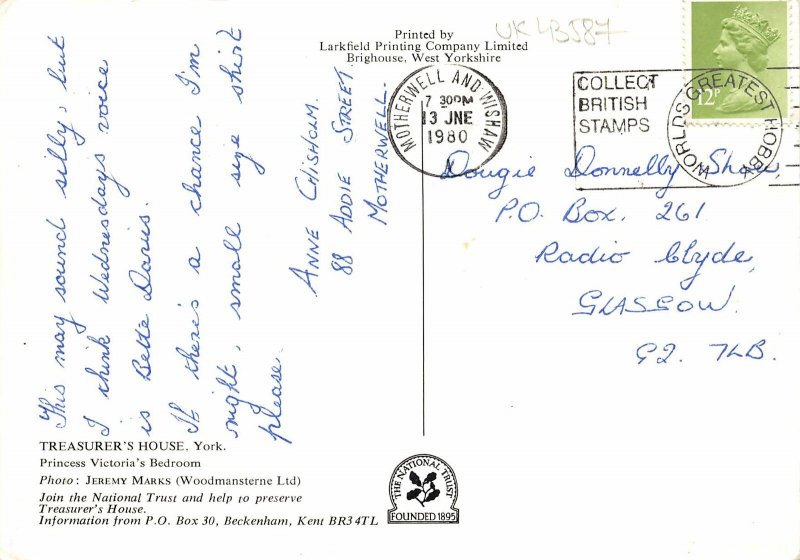 UK 43587
Printed by
Larkfield Printing Company Limited
Brighouse, West Yorkshire
MOTHERWELL AND WISHAW
7 30PM
13 JNE
1980
COLLECT
BRITISH
STAMPS
WORLDS GREATEST HOBBY
12P
Dougie Donnelly Show,
P.O. Box. 261
Radio Clyde,
GLASGOW.
G2. 7LB.
This may sound silly, but
I think Wednesdays voice
is Bette Davis.
If there's a chance I'm
right, small size shirt
please.
ANNE CHISHOLM.
88 ADDIE STREET.
MOTHERWELL.
TREASURER'S HOUSE, York.
Princess Victoria's Bedroom
Photo: JEREMY MARKS (Woodmansterne Ltd)
Join the National Trust and help to preserve
Treasurer's House.
Information from P.O. Box 30, Beckenham, Kent BR3 4TL
THE NATIONAL TRUST
FOUNDED 1895